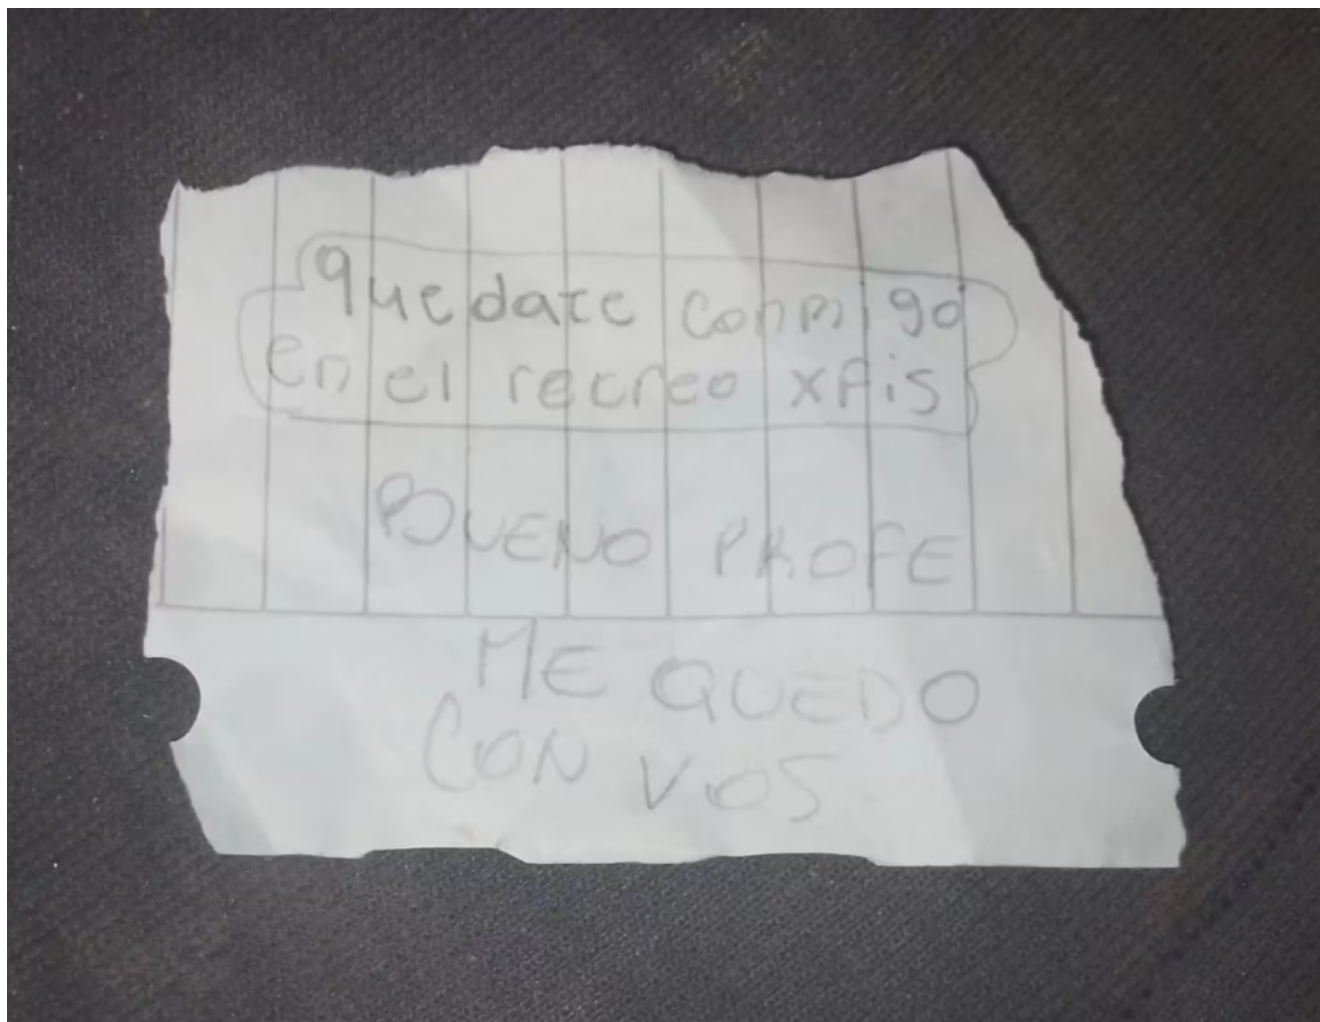 quedate conmigo
en el recreo xfis
BUENO PROFE
ME QUEDO
CON VOS